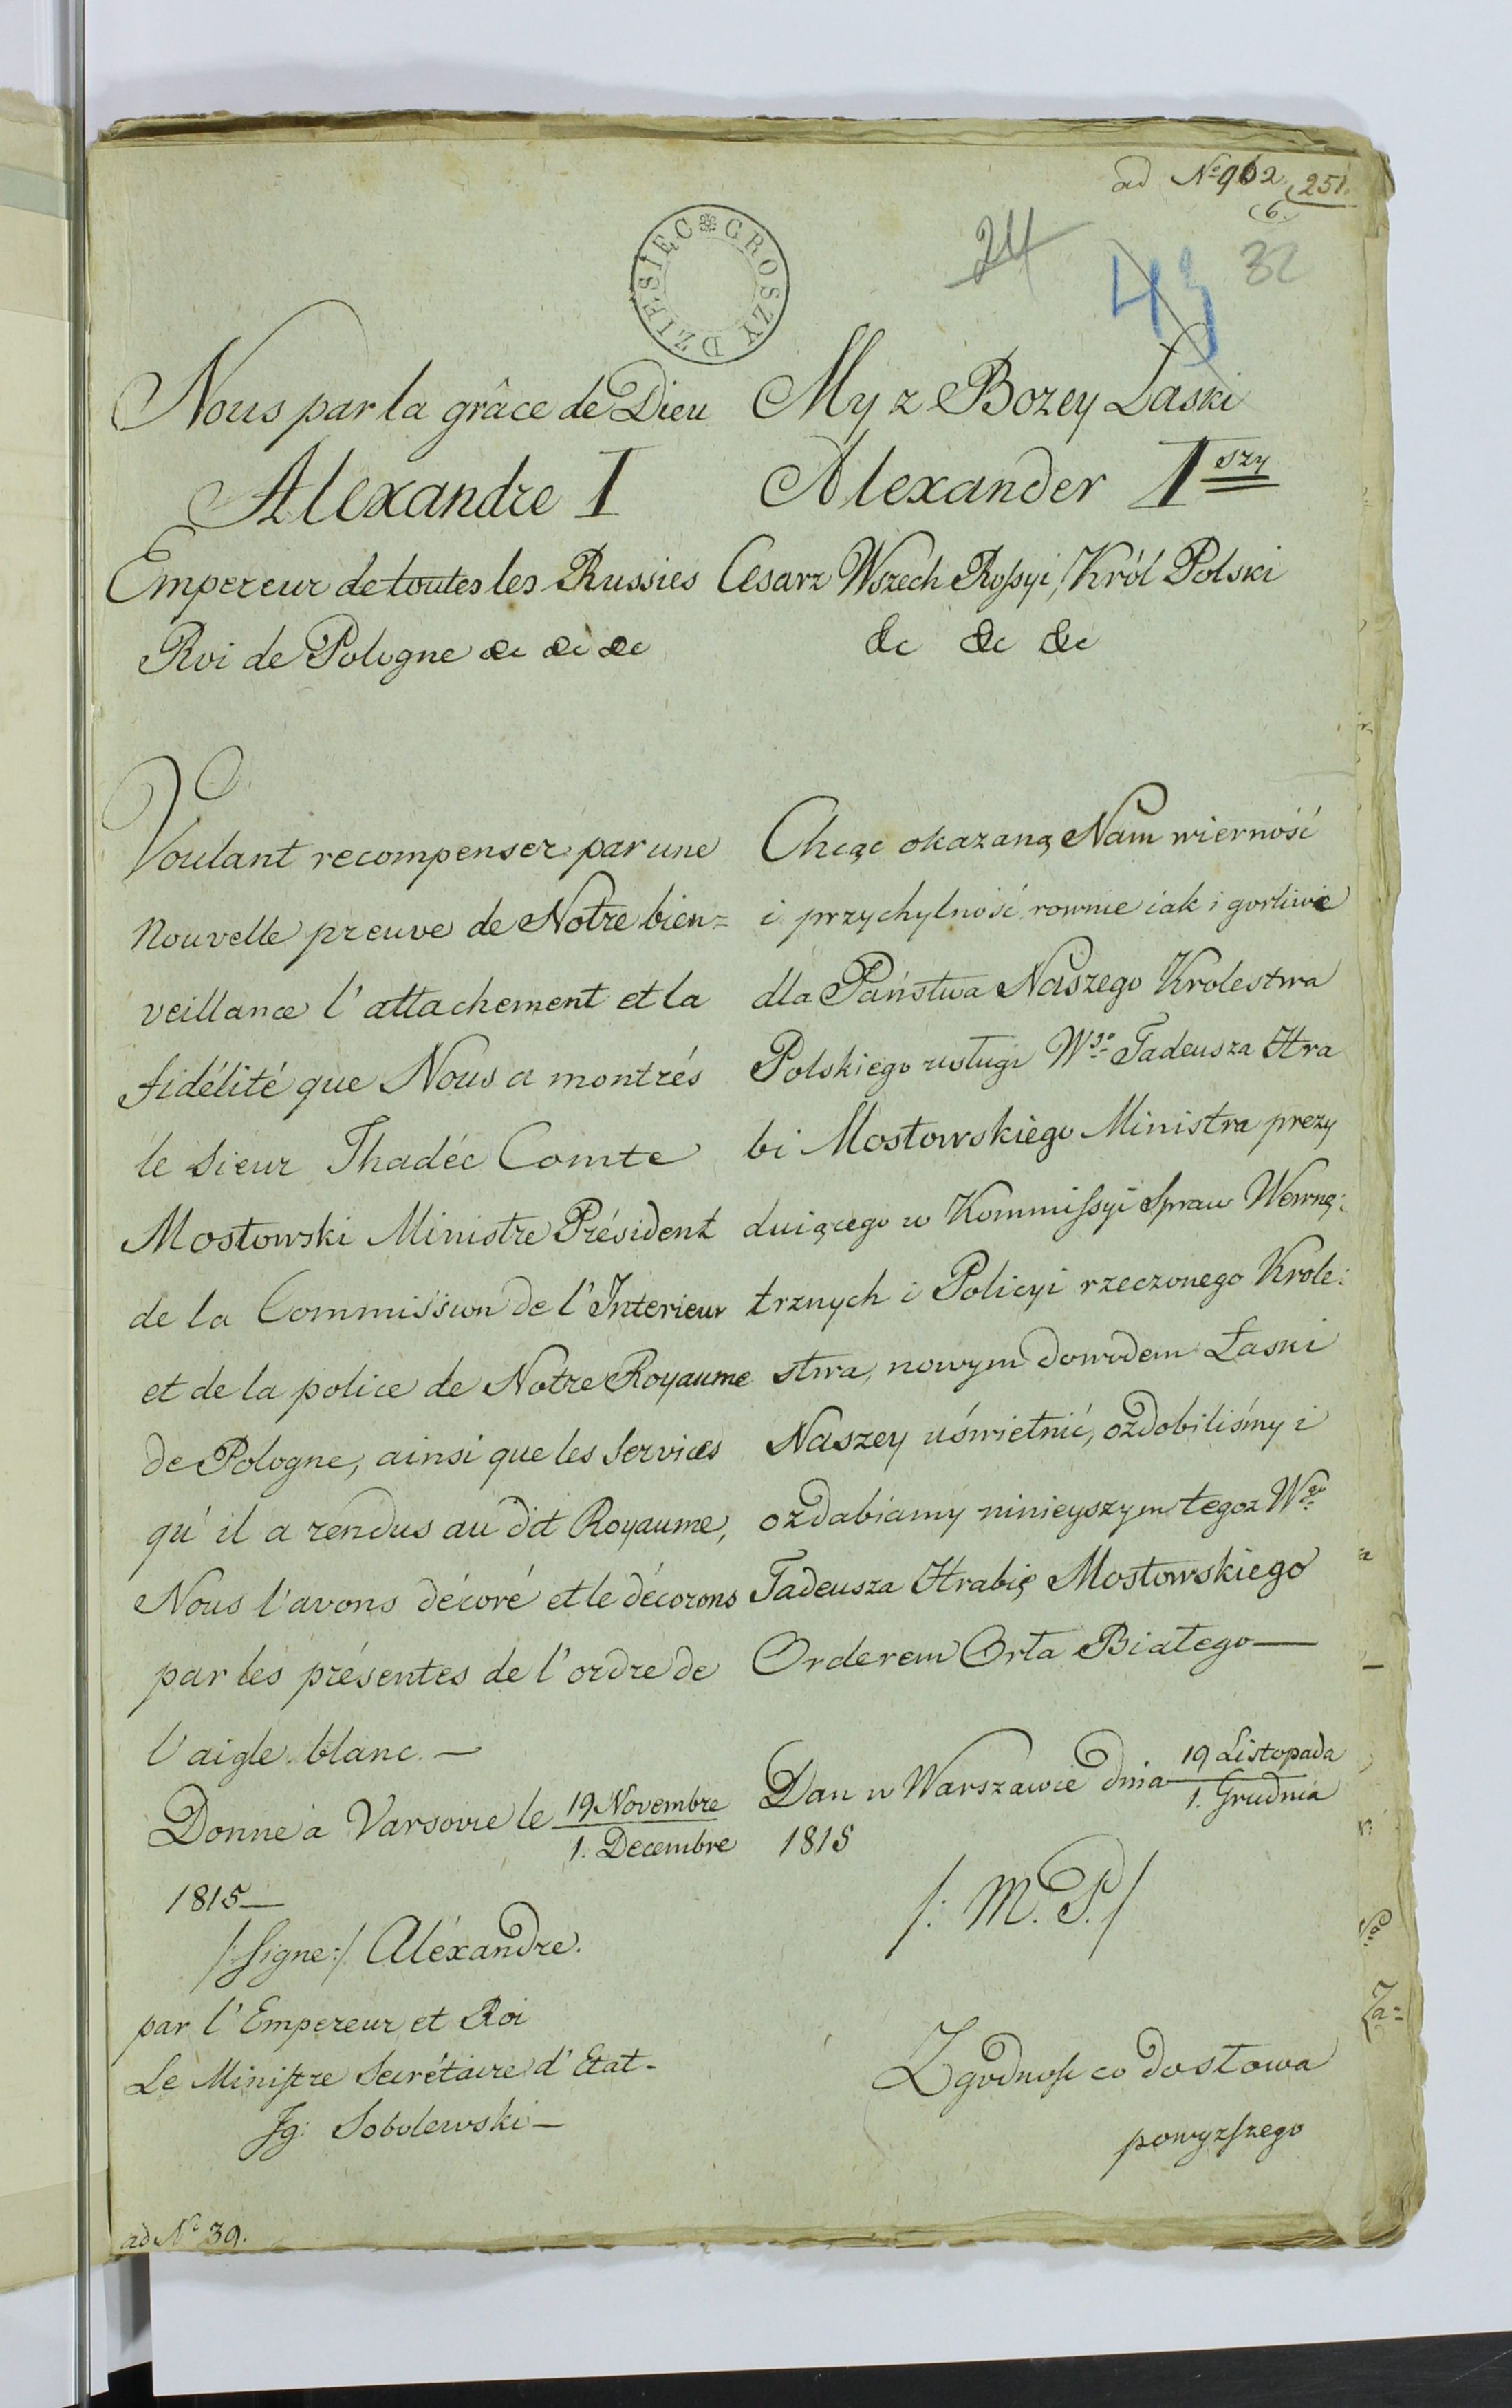 ad № 962. 251.
6.
24
43
32
DZIESIĘC GROSZY
Nous par la grâce de Dieu
Alexandre I
Empereur de toutes les Russies
Roi de Pologne &c &c &c
Voulant recompenser par une
nouvelle preuve de Notre bien=
veillance l'attachement et la
fidélité que Nous a montrés
le Sieur Thadée Comte
Mostowski Ministre Président
de la Commission de l'Interieur
et de la police de Notre Royaume
de Pologne, ainsi que les Services
qu'il a rendus au dit Royaume,
Nous l'avons décoré et le décorons
par les présentes de l'ordre de
l'aigle blanc. —
Donné à Varsovie le 19 Novembre
1. Decembre
1815 —
/:Signe:/ Aléxandre.
par l'Empereur et Roi
Le Ministre Secrétaire d'Etat -
Ig: Sobolewski —
ad № 39.
My z Bozey Łaski
Alexander Iszy
Cesarz Wszech Rossyi, Król Polski
&c &c &c
Chcąc okazaną Nam wierność
i przychylność rownie iak i gorliwe
dla Państwa Naszego Krolestwa
Polskiego usługi Wgo Tadeusza Hra
bi Mostowskiego Ministra prezy
duiącego w Kommissyi Spraw Wewnę:
trznych i Policyi rzeczonego Krole:
stwa, nowym dowodem Łaski
Naszey uświetnić, ozdobiliśmy i
ozdabiamy ninieyszym tegoz Wgo
Tadeusza Hrabię Mostowskiego
Orderem Orła Białego —
Dan w Warszawie dnia 19 Listopada
1. Grudnia
1815
/: M. P. /
Zgodność co do słowa
powyższego